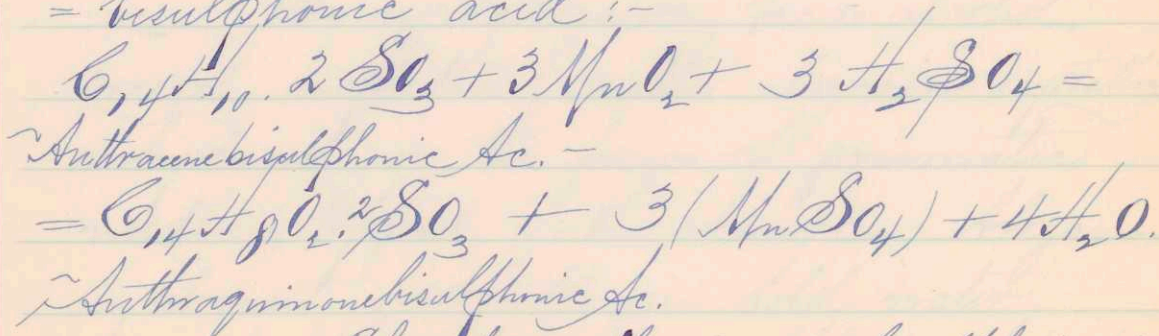 = bisulphonic acid :-
C₁₄H₁₀. 2 SO₃ + 3 MnO₂ + 3 H₂SO₄ =
~Anthracenebisulphonic Ac. -
= C₁₄H₈O₂.2SO₃ + 3(MnSO₄) + 4H₂O.
~Anthraquinonebisulphonic Ac.